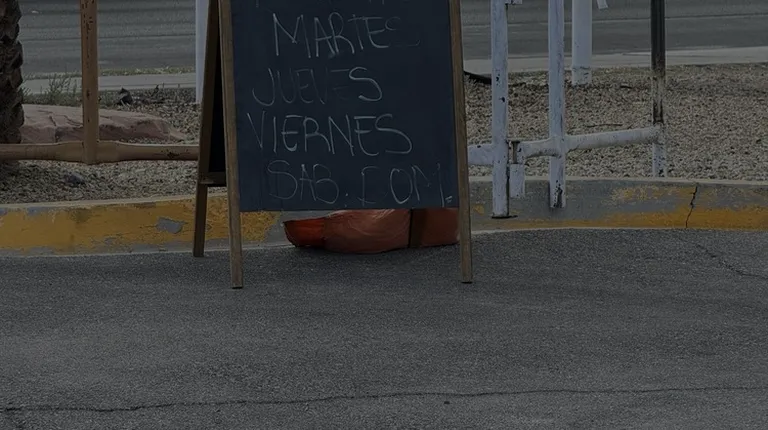 MARTES
JUEVES
VIERNES
SAB. DOM.